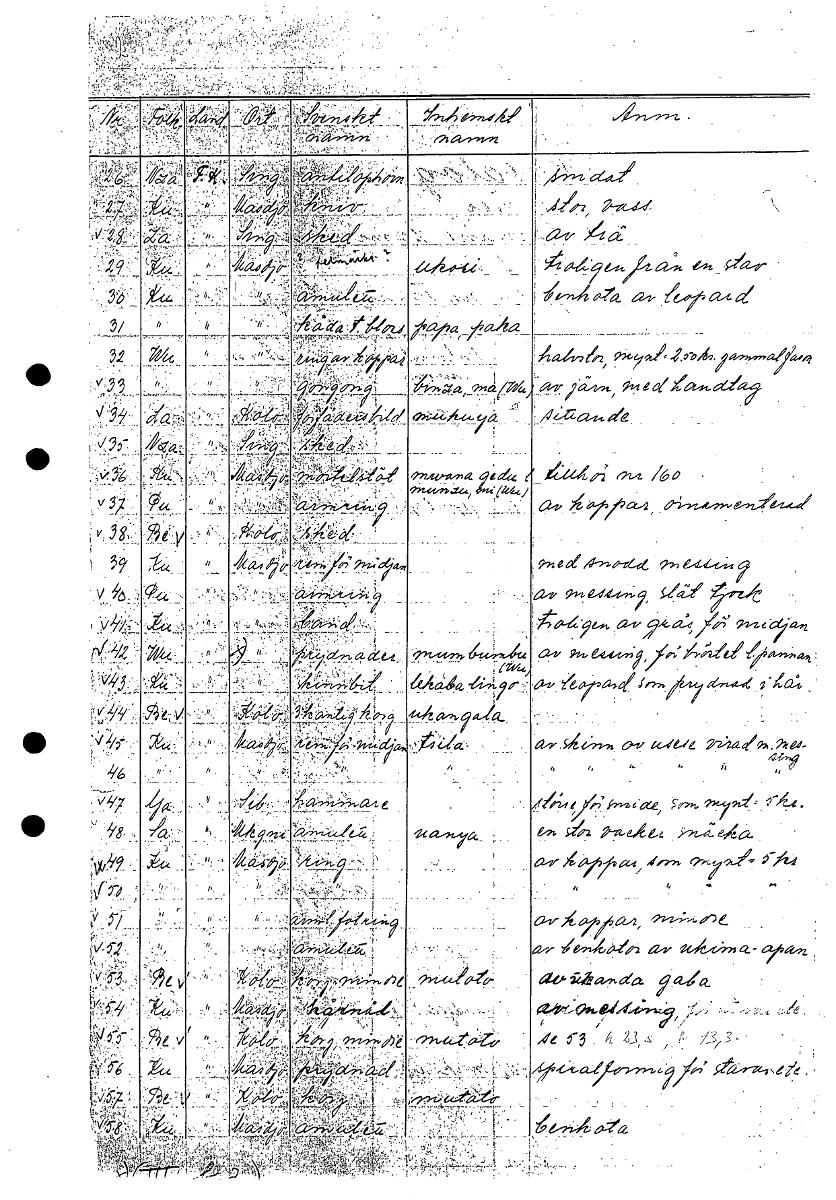 Nr Folk Land Ort Svenskt namn Inhemskt namn Anm.
26 Nza F.K. Sing antilophorn smidat
27 Ku " Masdjo kniv stor, vass
v 28 Za " Sing sked av trä
29 Ku " Masdjo ukosi troligen från en stav
30 Ku " " amulett benkota av leopard
31 " " " kåda t. bloss papa, paka
32 Wu " " ring av koppar halvstor, mynt = 2.50 kr. gammal
v 33 " " " gonggong binza, ma (Wu) av järn, med handtag
v 34 Za " Kolo förfädersbild mukuya sittande
v 35 Nza " Sing sked
v 36 Ku " Masdjo mortelstöt mwana gedu l. tillhör nr 160
(Wu)
v 37 Pu " " armring av koppar, ornamenterad
v 38 Be v " Kolo sked
39 Ku " Masdjo rem för midjan med snodd messing
v 40 Pu " " armring av messing, slät tjock
v 41 Ku " " band troligen av gräs, för midjan
v 42 Wu " " prydnader mumbumbu av messing, för bröstet l. pannan
(Wu)
v 43 Ku " " skinnbit lekaba lingo av leopard som prydnad i hår
v 44 Be v " Kolo 3kantig korg ukangala
v 45 Ku " Masdjo rem för midjan tsila av skinn av usese virad m. mes-
sing
46 " " " " " " " " " "
v 47 Ga " Sib hammare större för smide, som mynt = 5 kr.
48 Sa " amulett uanya en stor vacker snäcka
v 49 Ku " Masdjo ring av koppar, som mynt = 5 kr
v 50 " " " " " " " "
v 51 " " " fotring av koppar, mindre
v 52 " " amulett av benkotor av ukima-apan
v 53 Be v " Kolo korg, mindre mutoto av ukanda gaba
v 54 Ku " Masdjo hårnål av messing, för
v 55 Be v " Kolo korg, mindre mutato se 53 h 23,5 13,3
v 56 Ku " Masdjo prydnad spiralformig för stavar etc.
v 57 Be v " Kolo korg mutato
v 58 Ku " Masdjo amulett benkota